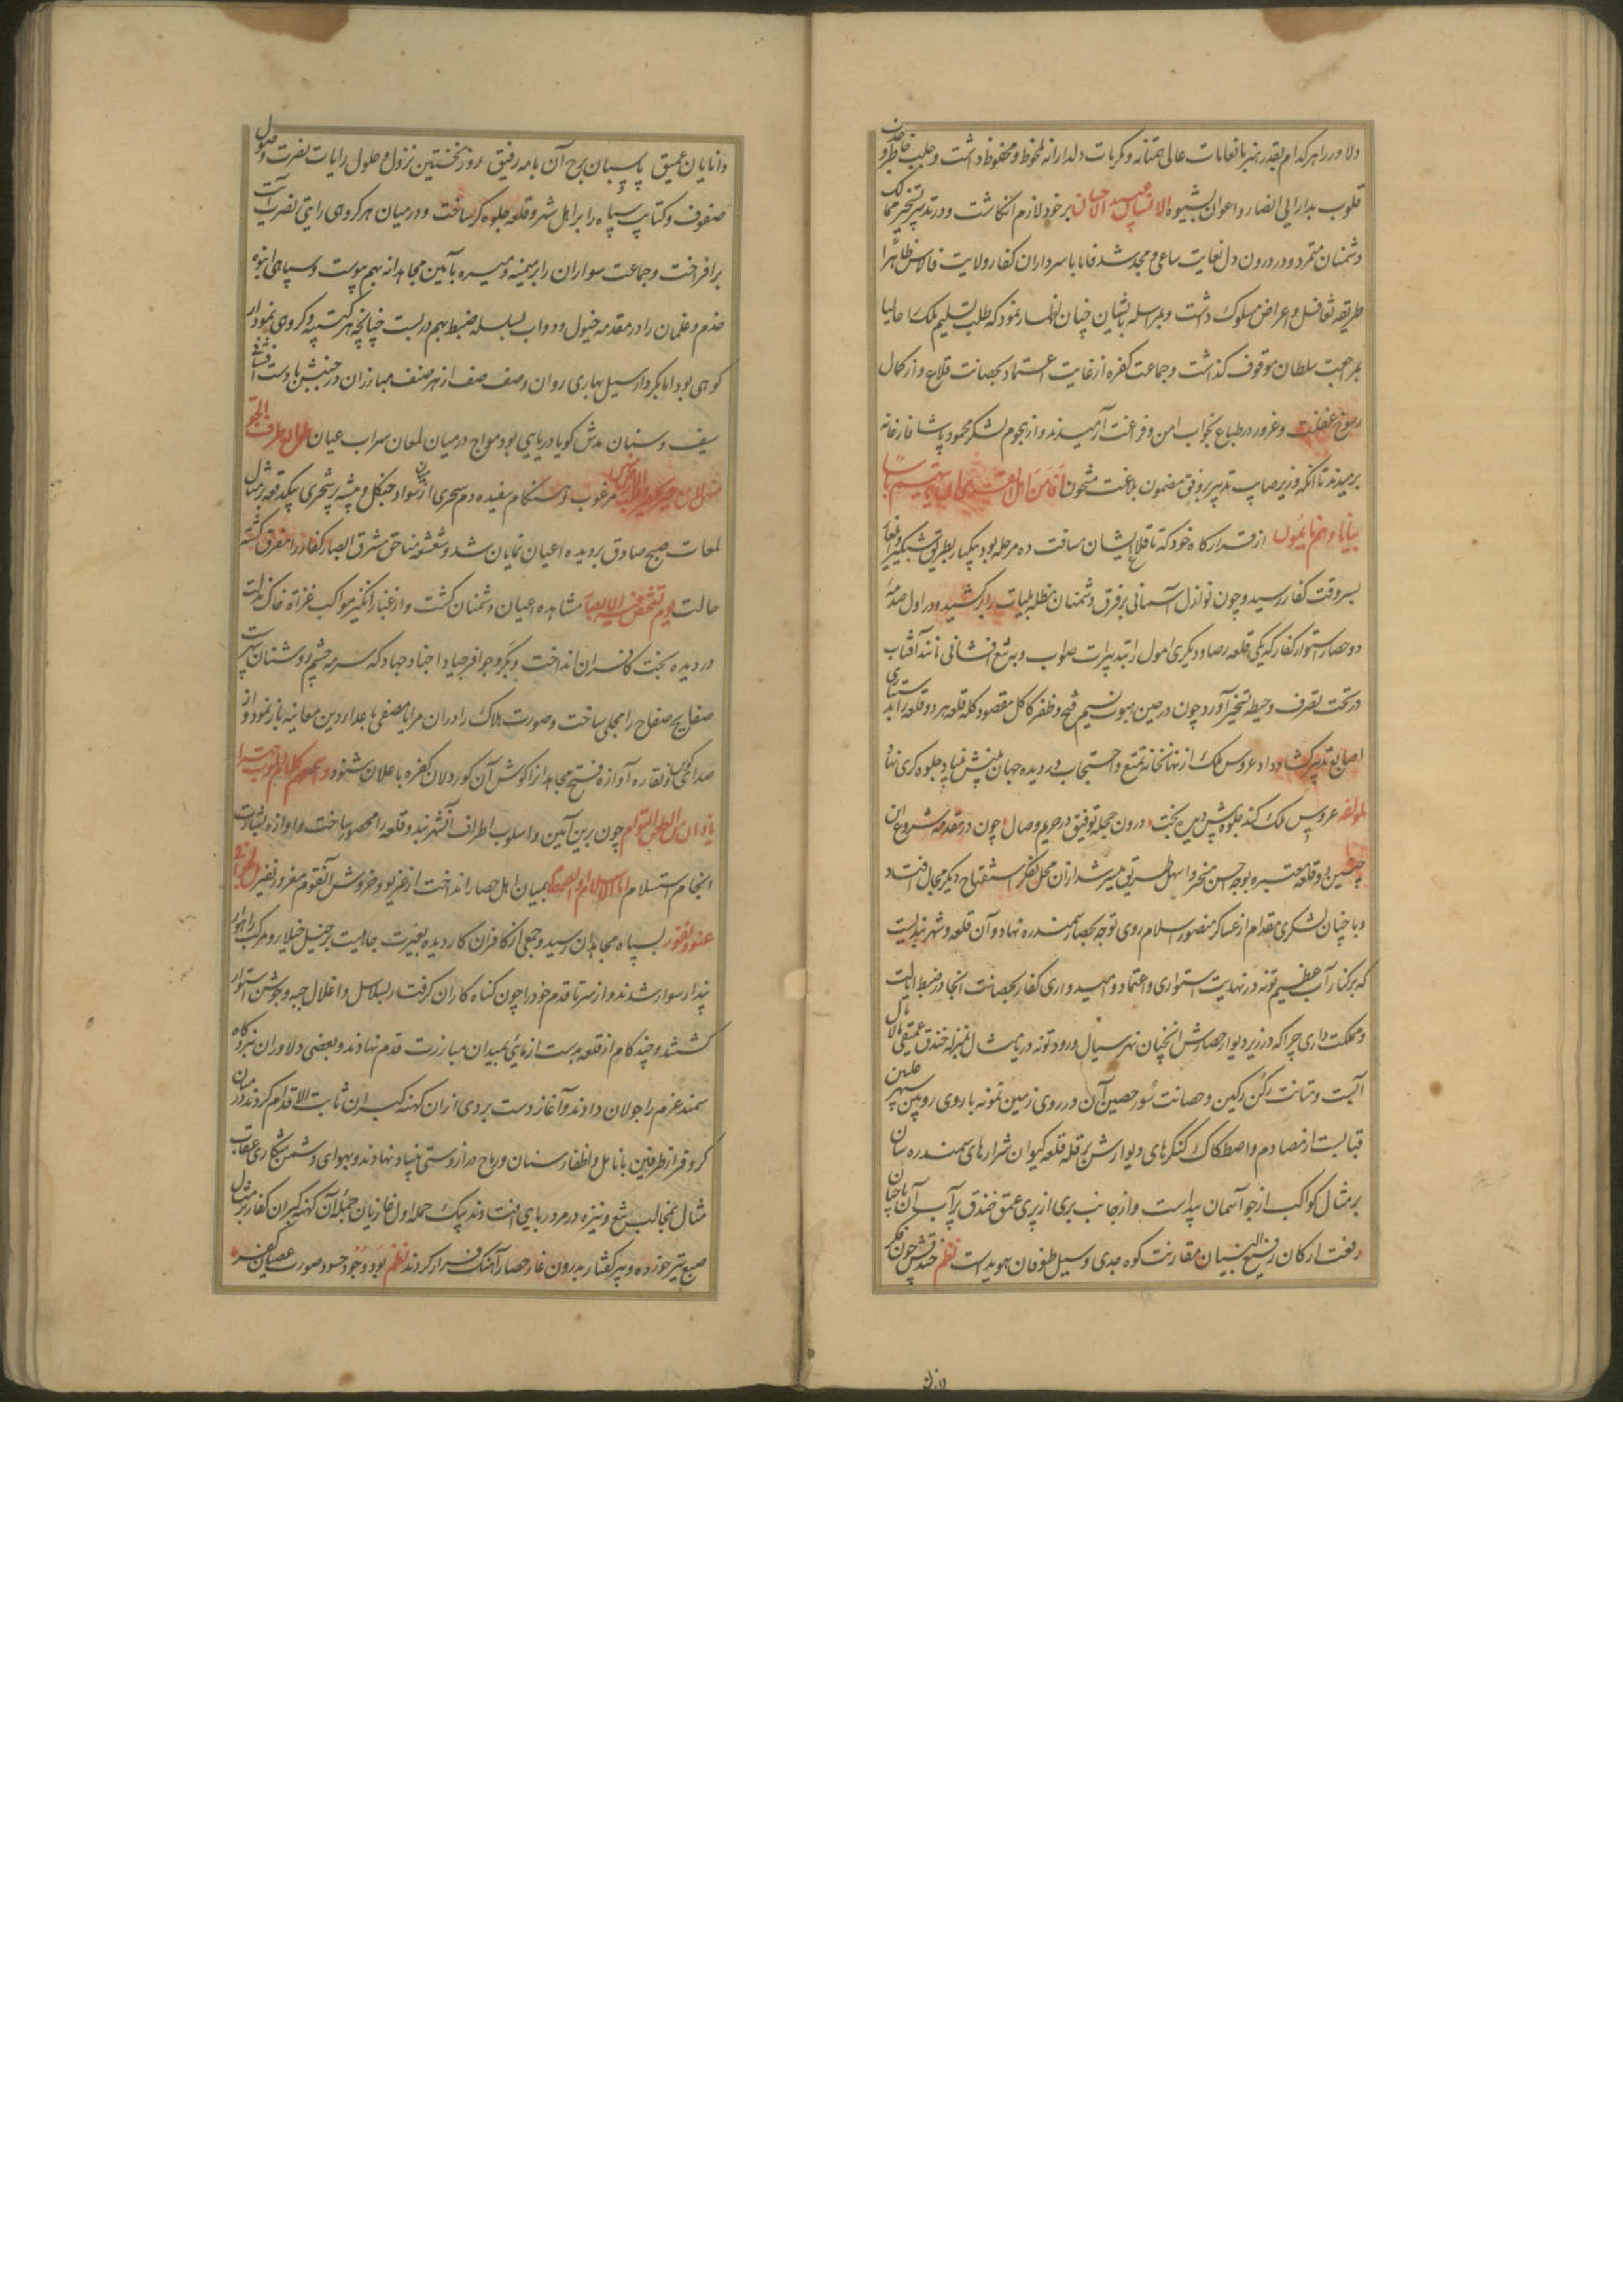 دلاور را هر کدام بقدر هنر بانعامات عالی همتانه و مکرمات دلدارانه ملحوظ و محظوظ داشت و جلب خاطر و حدت
قلوب بدارایی انصار و اعوان بشیوه الانسان عبید الاحسان بر خود لازم انکاشت و در تدبیر تسخیر ممالک
دشمنان متمرد و در درون دل بغایت ساعی و مجد شد فاما با سرداران کفار ولایت فلاس ظاهرا
طریقه تغافل و اعراض مسلوک داشت و بمراسله بایشان چنان اظهار نمود که طلب تسلیم ملک را حالیا
بمراجعت سلطان موقوف کذاشت و جماعت کفره از غایت اعتماد بحصانت قلاع و از کمال
رسوخ غفلت و غرور در طباع بخواب امن و فراغت آرمیدند و از هجوم لشکر محمود پاشا فارغانه
رمیدند تا انکه وزیر صایب تدبیر بر وفق مضمون بلاغت مشحون افامن اهل القری ان یاتیهم باسنا
بیاتا وهم نایمون از قرارکاه خود که تا قلاع ایشان مسافت ده مرحله بود بیکبار بطریق شبکیر و ایلغار
بسر وقت کفار رسید و چون نوازل آسمانی بر فرق دشمنان مظله بلیات را برکشید و در اول صدمه
دو حصار استوار کفار که یکی قلعه رصاو و دیکری امول را بتدبیرات صواب و به تیغ افشانی مانند آفتاب
در تحت تصرف و حیطه تسخیر آورد و چون در حین هبوب نسیم فتح و ظفر کاکل مقصود کله قلعه هر دو قلعه را بدستیاری
اصابع تدبیر کشاد داد عروس ملک از نهانخانه تمتع و احتجاب در دیده جهان بینش بنیاد جلوه کری نهاد
لمؤلفه عروس ملک کند جلوه پیش دیده بخت درون حجله توفیق در حریم وصال چون در مقدمه شروع این
چنین دو قلعه معتبره بوجه احسن مسخر و اسهل طریق میسر شد ازان محل بفکر استفتاح دیکر مجال افتاد
و با چنان لشکری مقدام از عساکر منصور اسلام روی توجه بحصار سمندره نهاد و آن قلعه و شهر بندیست
که بر کنار آب عظیم تونه در نهایت استواری و اعتماد و امیدواری کفار بحصانت انجا در ضبط ایالت
و مملکت داری چرا که در زیر دیوار حصارش انچنان نهر سیال و رود تونه دریا مثال بمنزله خندق عمیقی مالامال
آبست و متانت رکن رکین و حصانت سور حصین آن در روی زمین نمونه باروی رویین سپهر
قبالیست از مصادم و اصطکاک کنکرهای دیوارش بر قله قلعه کیوان شرارهای سمندره سان
بر مثال کواکب از جو آسمان پیداست و از جانب بری از پری عمق خندق پر آب آن با چنان
رفعت ارکان رفیع البنیان مقارنت کوه جدی و سیل طوفان هویداست نظم خندقش چون فکر
دانایان عمیق پاسبان برج آن با مه رفیق روز نخستین نزول و حلول رایات نصرت وصول
صفوف و کتایب سپاه را بر اهل شهر و قلعه جلوه کر ساخت و در میان هر کروهی رایتی نصرت آیت
برافراخت و جماعت سواران را بر میمنه و میسره بآیین مجاهدانه بهم پیوست و سپاهی انبوه
خدم و غلمان را در مقدمه خیول و دواب بسلسله ضبط بهم در بست چنانچه هر کتیبه و کروهی نمودار
کوهی بود اما بکردار سیل بهاری روان و صف صف از هر صنف مبارزان در جنبش با دست افشانی
سیف و سنان مدش کویا دریایی بود مواج در میان لمعان سراب عیان
مرعوب و هنکام سفیده دم سحری از میان سواد جنکل و بیشه پر شجری بیکدفعه بر مثال
لمعات صبح صادق بر دیده اعیان نمایان شد و شعشعه مناجق مشرق ابصار کفار را مفرق کشته
حالت یوم تشخص فیه الابصار مشاهده اعیان دشمنان کشت و از غبار انکیز مواکب غزاة خاک مذلت
در دیده بخت کافران انداخت و بکرد حوافر جیاد اجناد جهاد که سرمه چشم روشنان سپهرست
صفایح صفاح را مجلی ساخت و صورت هلاک را در ان مرایا مصفی باعدای دین معاینه باز نمود و از
صدای کوس و نقاره آوازه فتح مجاهدان کوش آن کوردلان کفره باعلان شنود
چون برین آیین و اسلوب اطراف آنشهر بند و قلعه را محصور ساخت و آوازه بشارت
انجام استسلام اما الاسلام و بمیان اهل حصار انداخت از غریو و خروش آنقوم مغرور نفیر بل لجوا فی
عتو و نفور بسپاه مجاهدان رسید و جمعی از کافران کاردیده بغیرت جاهلیت بر خیل خیلا و مرکب راهوار
پندار سوار شدند و از سر تا قدم خود را چون کناه کاران کرفتار بسلاسل و اغلال جبه و جوشن استوار
کشتند و چند کام از قلعه بدست ازمایی بمیدان مبارزت قدم نهادند و بعضی دلاوران نبردکاه
سمند عزم را جولان دادند و آغاز دست بردی ازان کهنه کبران ثابت الاقدام کردند در میان
کر و فر از طرفین بانامل و اظفار سنان و رماح دراز دستی بنیاد نهادند و بهوای دشمن شکاری عقاب
مثال بمخالب تیغ و نیزه در مرور بایی افتادند بیک حمله اول غازیان جمله آن کهنه کبران کفار بر مثال
صبع تیر خورده و پیر کفتار بدرون غار حصار آهنک فرار کردند نظم بود وجود حسود صورت عصیان کفر